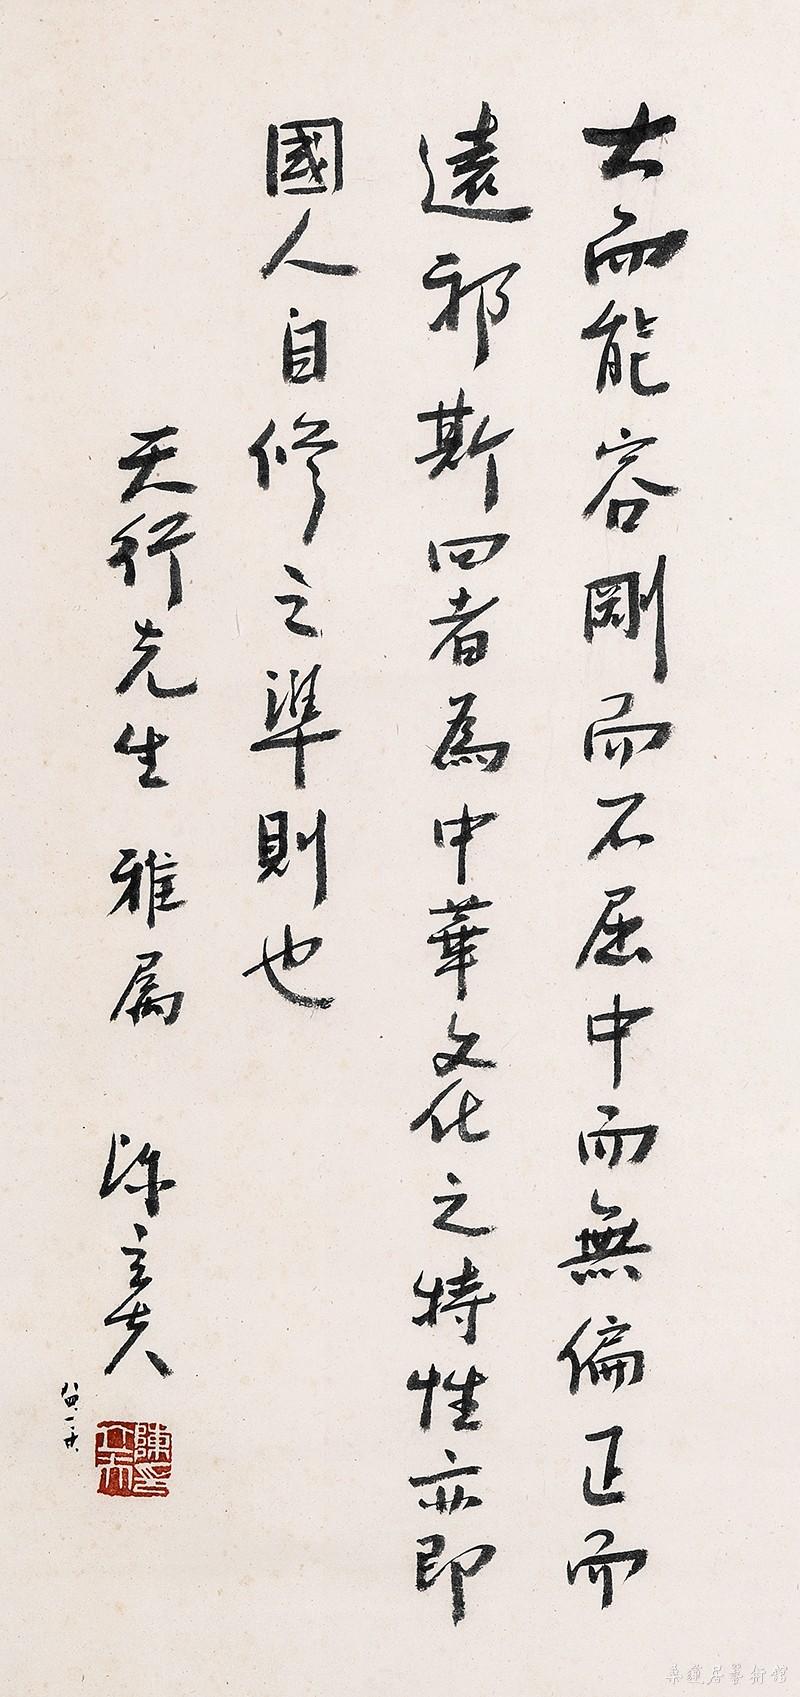 大而能容剛而不屈中而無偏正而
遠邪斯四者為中華文化之特性亦即
國人自修之準則也
天行先生 雅屬 陳立夫
陳立夫印